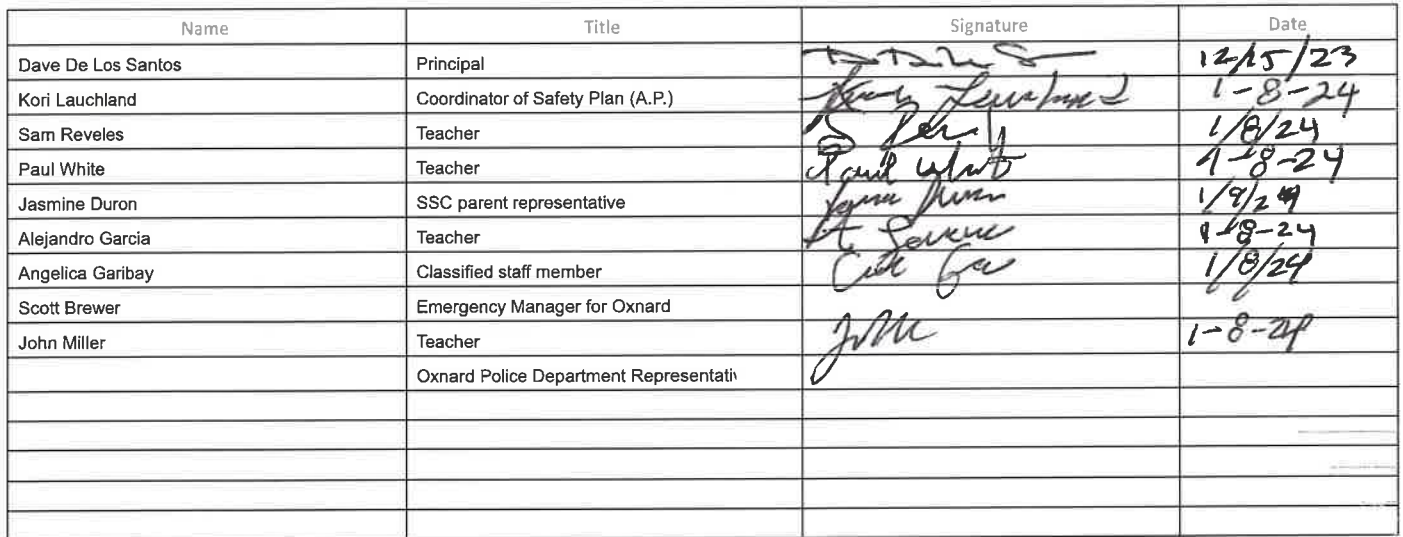 Name Title Signature Date
Dave De Los Santos Principal 12/15/23
Kori Lauchland Coordinator of Safety Plan (A.P.) 1-8-24
Sam Reveles Teacher 1/8/24
Paul White Teacher Paul White 1-8-24
Jasmine Duron SSC parent representative 1/9/24
Alejandro Garcia Teacher 1-8-24
Angelica Garibay Classified staff member 1/8/24
Scott Brewer Emergency Manager for Oxnard
John Miller Teacher 1-8-24
Oxnard Police Department Representativ